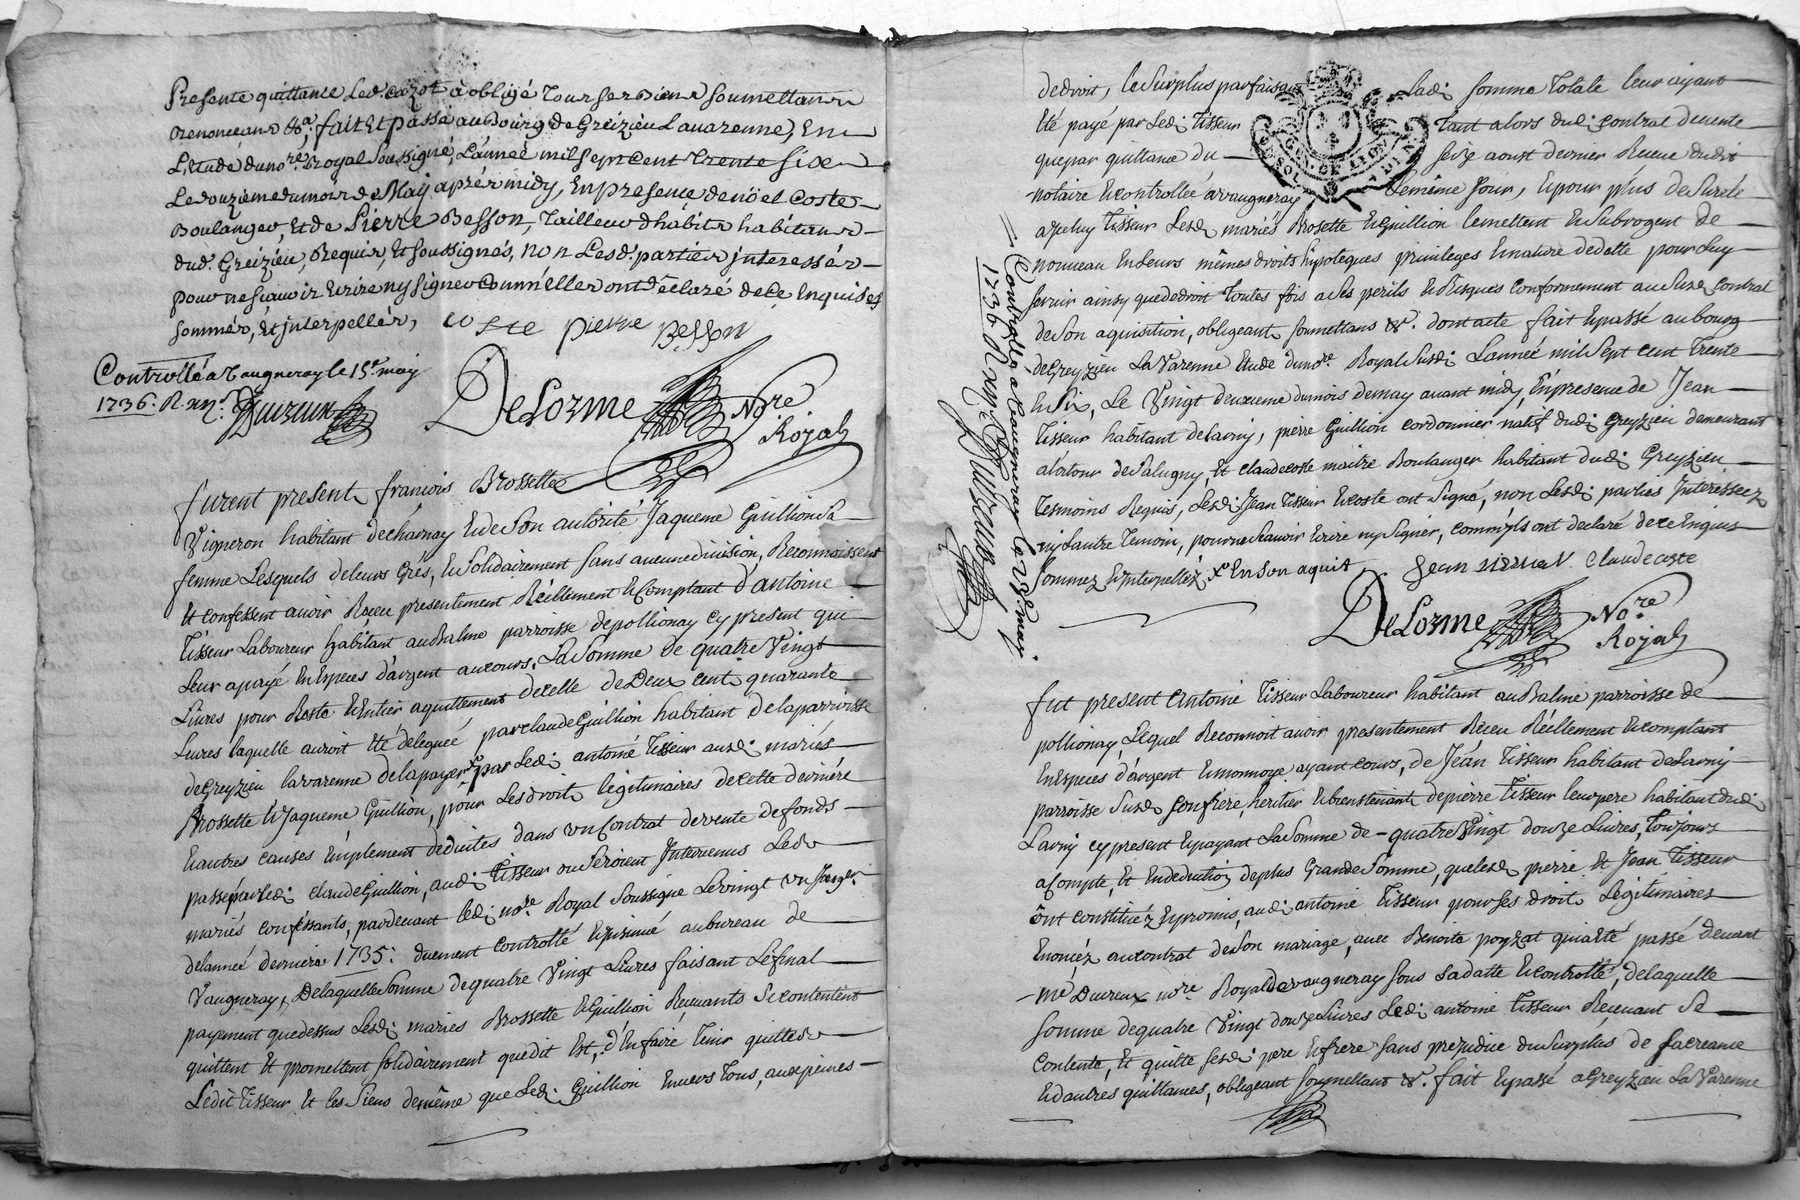 Presente quittance Led. cazot a obligé tous ses biens soumettans
renonceans &a, fait Et passé au Bourg de Greizieu Lavarenne, En
L'etude du nore Royal soussigné, L'année mil sept cent trente six
Le douzieme du mois de Maÿ aprés midy, En presence de noël Coste
Boulanger, Et de Pierre Besson, Tailleur d'habits habitans
dud. Greiziéu, Requis, Et soussignés, non Lesd. parties jnteressés
pour ne sçavoir Ecrire ny signer comm'elles ont déclaré de ce Enquises
sommés, Et jnterpellés,
coste pierre Besson
Controllé a Vaugneray le 15e may
1736. R.
DeLorme Nore
Roÿal
furent present françois Brossette
Vigneron habitant de charnay Et de son autorité Jaqueme Guillion sa
femme Lesquels de leurs Grés, Et solidairement sans aucune division, Reconnoissent
Et confessent avoir Reçeu presentement Réellement Et comptant d'antoine
Tisseur Laboureur habitant au Balme parroisse de pollionay cy present qui
Leur a payé En Especes d'argent au cours, La somme de quatre Vingt
Livres pour Reste Et Entier aquittement de celle de Deux cent quarante
Livres laquelle auroit Eté deleguée par claude Guillion habitant de la parroisse
de Greyzieu lavarenne de la payer par Ledi antoine Tisseur ausdi mariés
Brossette Et Jaqueme Guillion, pour Les droits légitimaires de cette derniére
Et autres causes Emplement déduites dans un Contrat de vente de fonds
passé par Ledi claude Guillion, audi Tisseur ou seroient Jntervenus Lesd
mariés confessants, pardevant Ledi nore Royal soussigné Le vingt un
de l'année derniere 1735: duement controllé Et jnsinué au bureau de
Vaugneray, De laquelle somme de quatre Vingt Livres faisant Le final
payement que dessus Lesdi mariés Brossette Et Guillion Recevants se contentent
quittent Et promettent solidairement que dit Est, d'En faire Tenir quittes
Ledit Tisseur Et les siens de même que Ledi Guillion Envers tous, aux peines
de droit, le surplus parfaisant ladi somme totale leur ayant
Eté payé par Ledi Tisseur tant alors dudi contrat de vente
que par quittance du seize aoust dernier Receue dudit
notaire Et controllée a vaugneray le même Jour, Et pour plus de sureté
a celuy Tisseur Lesdi mariés Brosette Et Guillion le mettent Et subrogent de
nouveau En Leurs mêmes droits hipoteques privileges Et nature de dette pour Luy
servir ainsy que de droit toutes fois a ses perils Et Risques conformement au susd contrat
de son aquisition, obligeant soumettans &. dont acte fait Et passé au bourg
de Greyzieu La Varenne Etude du nore Royal susdi L'année mil sept cent trente
En six, Le Vingt deuxieme du mois de may avant midy, En presence de Jean
Tisseur habitant de Lavny, pierre Guillion cordonnier natif dudi Greyzieu demeurant
alatour de salugny, Et claude coste maitre Boulanger habitant dudi Greyzieu
Tesmoins Requis, Lesdi Jean Tisseur Et coste ont signé, non Lesdi parties Interessées
ny L'autre Temoin, pour ne sçavoir Ecrire ny signer, comm'ils ont declaré de ce Enquis
sommez Et jnterpellez x En son aquit.
Jean Claude coste
DeLorme Nore
Roÿal
Controllé a Vaugneray le may
1736 R
fut present Antoine Tisseur Laboureur habitant au Balme parroisse de
pollionay, Lequel Reconnoit avoir presentement Receu Réellement Et comptant
En Especes d'argent Et monnoye ayant cours, de Jéan Tisseur habitant de Lavny
parroisse susdi son frere, heritier Et bienstenant de pierre Tisseur leur pere habitant dudi
Lavny cy present Et payant La somme de quatre Vingt douze Livres, Toujours
a Compte, Et En deduction de plus Grande somme, que lesd pierre Et Jean Tisseur
ont constituéz Et promis, audi antoine Tisseur pour ses droits Legitimaires
Enoncéz au contrat de son mariage, avec Benoite poyzat qui a Eté passé devant
me Ducreux nore Royal de vaugneray sous sa datte Et controllé, de laquelle
somme de quatre Vingt douze Livres Ledi antoine Tisseur Recevant se
contente, Et quitte sesdi pere Et frere sans prejudice du surplus de sa creance
Et d'autres quittances, obligeant soumettant &. fait Et passé a Greyzieu La Varenne